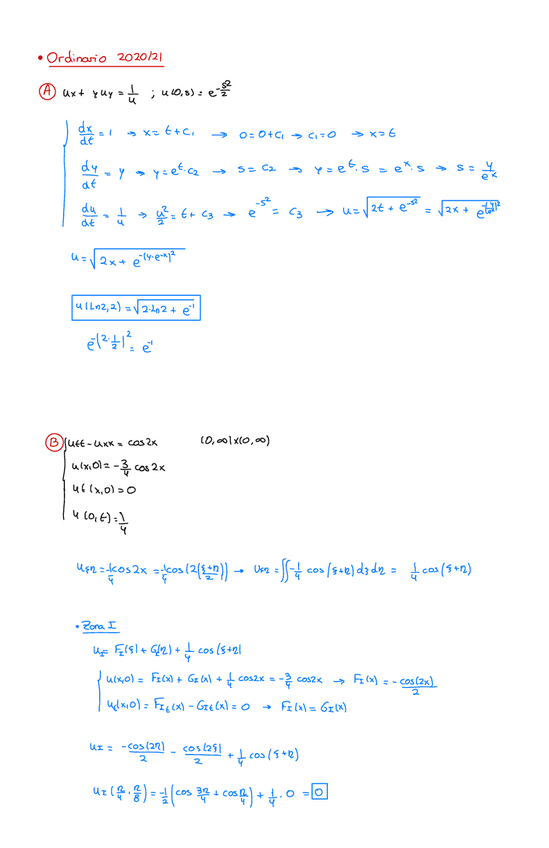 • Ordinario 2020/21
A ux + y uy = 1/u ; u(0,s) = e^(-s²/2)
dx/dt = 1 → x = t + C₁ → 0 = 0 + C₁ → C₁ = 0 → x = t
dy/dt = y → y = e^t · C₂ → s = C₂ → y = e^t · s = e^x · s → s = y/e^x
du/dt = 1/u → u²/2 = t + C₃ → e^(-s²) = C₃ → u = √(2t + e^(-s²)) = √(2x + e^(-(y/e^x)²))
u = √(2x + e^(-(y·e^-x)²))
u(Ln2,2) = √(2·Ln2 + e^-1)
e^-(2·1/2)² = e^-1
B utt - uxx = cos2x (0,∞)x(0,∞)
u(x,0) = -3/4 cos2x
ut(x,0) = 0
u(0,t) = 1/4
uξη = -1/4 cos2x = -1/4 cos(2(ξ+η/2)) → uξη = ∬ -1/4 cos(ξ+η) dξ dη = 1/4 cos(ξ+η)
• Zona I
uI = FI(ξ) + G(η) + 1/4 cos(ξ+η)
u(x,0) = FI(x) + GI(x) + 1/4 cos2x = -3/4 cos2x → FI(x) = -cos(2x)/2
ut(x,0) = FIt(x) - GIt(x) = 0 → FI(x) = GI(x)
uI = -cos(2η)/2 - cos(2ξ)/2 + 1/4 cos(ξ+η)
uI(π/4, π/8) = -1/2 (cos 3π/4 + cos π/4) + 1/4 · 0 = 0